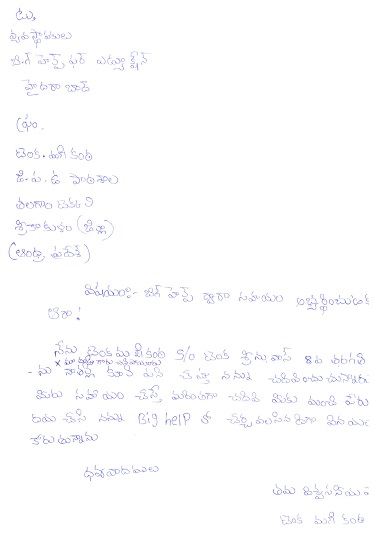 టు,
వ్యవస్థాపకులు
బిగ్ హెల్ప్ ఫర్ ఎడ్యుకేషన్
హైదరాబాద్
ఫ్రం.
టెంక. మణికంఠ
జి.ప.ఉ పాఠశాల
తలగాం టెక్కలి
శ్రీకాకుళం (జిల్లా)
(ఆంధ్ర ప్రదేశ్)
విషయం:- బిగ్ హెల్ప్ ద్వారా సహయం అభ్యర్థించుట
ఆర్యా!
నేను టెంక మణికంఠ S/o టెంక శ్రీనువాస్ 8వ తరగతి
మా నాన్న కూలి పని చేస్తూ నన్ను చదివించుచున్నారు
మీరు సహాయం చేస్తే మరింతగా చదివి మీకు మంచి పేరు
దయ చేసి నన్ను Big help లో చేర్చవలసినదిగా
కోరుతున్నాను
ధన్యవాదములు
తమ విశ్వసనీయ
టెంక మణికంఠ